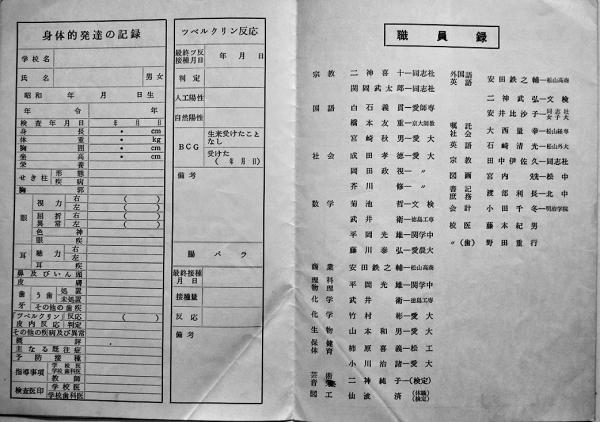 身体的発達の記録
学校名
氏名 男女
昭和 年 月 日生
年令 年
検査年月日 年 月 日
身長 ・ cm
体重 ・ kg
胸囲 ・ cm
坐高 ・ cm
栄養
せき柱 形態
疾病
胸郭
眼 視力 右 ( )
左 ( )
屈折異常 右 ( )
左 ( )
色神
眼疾
耳 聴力 右
左
耳疾
鼻及びいん頭
皮膚
歯牙 う歯 処置
未処置
その他の歯疾
ツベルクリン皮内反応 反応 ( )
判定
その他の疾病及び異常
概評
主なる既往症
予防接種
指導事項 学校医
学校歯科医
教師
検査医印 学校医
学校歯科医
ツベルクリン反応
最終ツ反接種月日 年 月 日
判定
人工陽性
自然陽性
BCG 生来受けたことなし
受けた( 年 月 日)
備考
腸パラ
最終接種月日
接種量
反応
備考
職員録
宗教 二神喜十―同志社
関岡武太郎―同志社
国語 白石義貫―愛師専
橋本友重―京大師教
宮崎秋男―愛大
社会 成田孝徳―愛大
岡田政視―〃
芥川修―〃
数学 菊池哲―文検
武井衛―徳島工専
平岡光雄―関学中
藤川泰弘―愛農大
商業 安田鉄之輔―松山高商
理科
物理 平岡光雄―関学中
化学 武井衛―徳島工専
化学 竹村彬―愛大
生物 山本和男―愛大
保健
体育 柿原喜義―松工
小川治諸―愛大
芸術
音楽 二神純子―(検定)
図工 仙波済―(休職)(検定)
外国語
英語 安田鉄之輔―松山高商
二神武弘―文検
安井比沙子―同志社女子大
嘱託
社会 大西量幸―松山経専
英語 石崎清光―松山外大
宗教 田中伊佐久―同志社
図画 宮内―松中
書記
庶務 渡部利長―北中
会計 小田千冬―明治学院
校医 藤本紀男
〃(歯) 野田重行